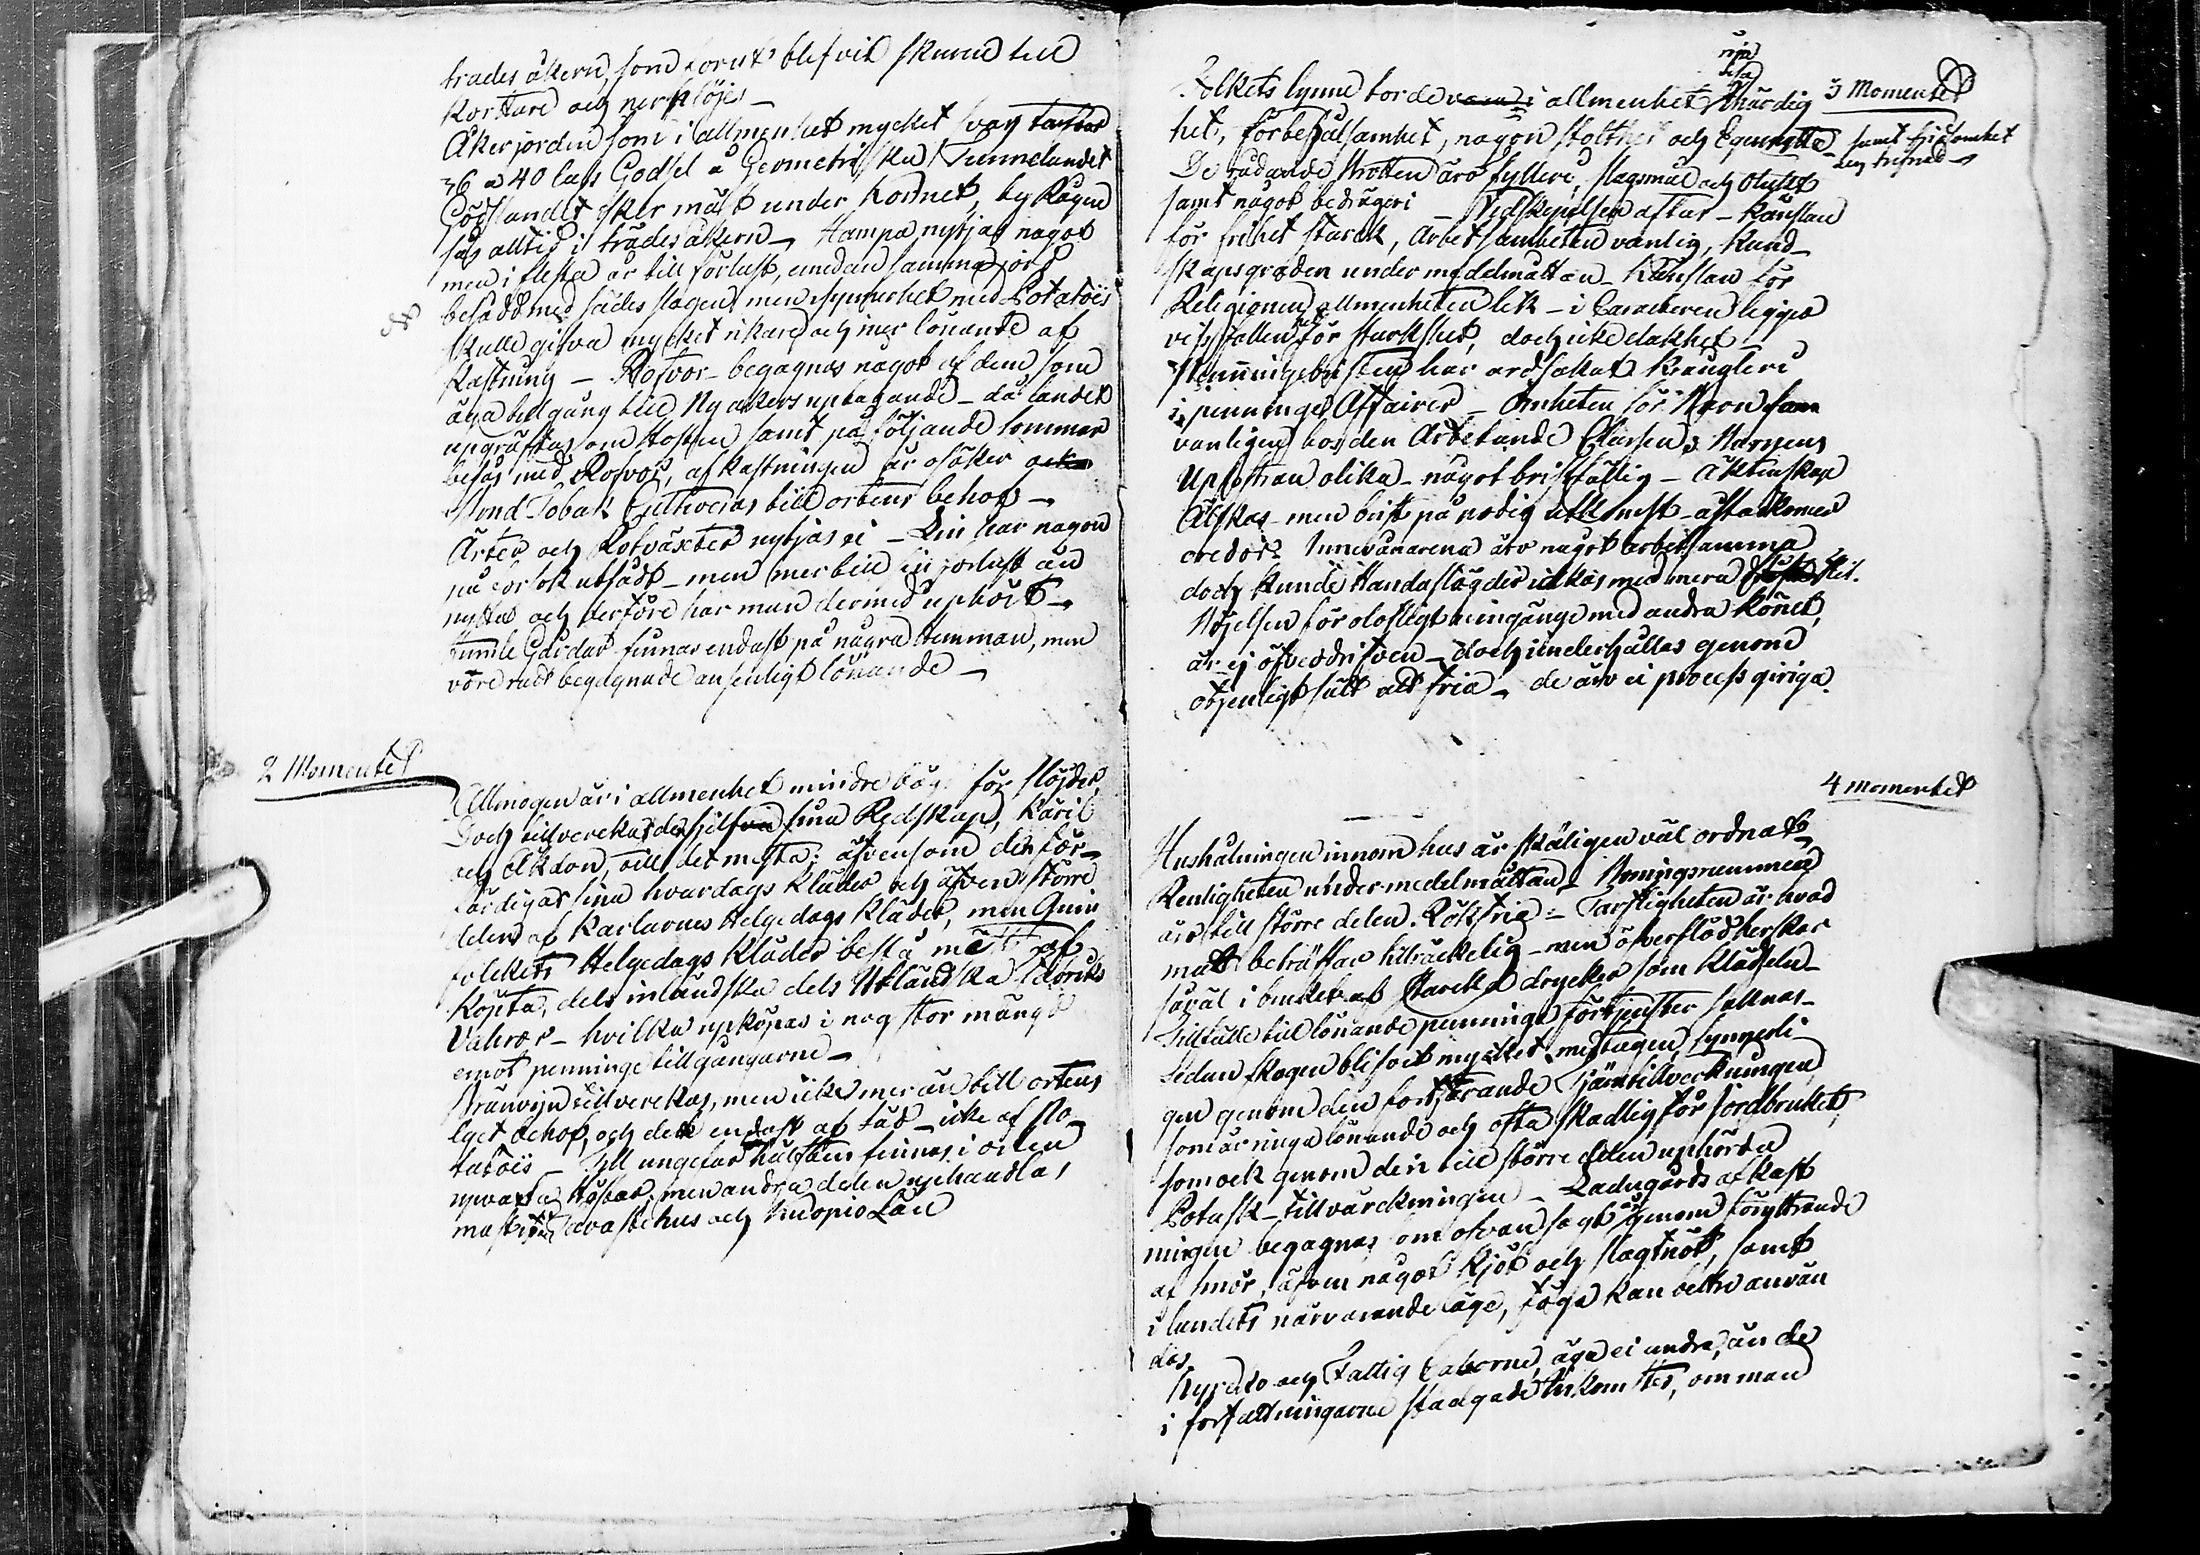 trädes åkern, som förut blifvit skuren till
kortare och nerplöjes —
Åkerjorden som i allmenhet mycket svag tarfvar
36 a 40 lass Gödsel å Geometriska Tunnelandet
Gödslandet sker mäst under kornet, ty Rågen
sås alltid i trädesåkern — Hampa nytjas något
men i flesta år till förlust, emedan samma jord
besådd med sädes slagen, men synnerhet med Potatoës
skulle gifva mycket rikare och mer lönande af
kastning — Rofvor begagnas något af dem som
äga tillgång till Ny åkers uptagande — då landet
upgräftas om Hösten samt på följande sommar
besås med Rofvor, afkastningen är osäker
Tobak Cultiveras till ortens behof —
Ärter och Rotväxter nytjas ei — Lin har någon
på försök utsådt — men mer till förlust än
nytta och derföre har man dermed uphört —
Humle Gårdar finnas endast på några Hemman, men
vore rätt begagnade ansenligt lönande —
2 Momentet
Allmogen är i allmenhet mindre båg för slöjder
Doch tillverkas de sielfva sina Redskap, Käril
och Åkdon, till det mesta; äfvensom de för-
färdigar sina hvardags kläder och äfven större
delen af Karlarnes Helgedags Kläder, men Quin
folckets Helgedags Kläder bestå mest af
Köpta, dels inländska dels Utländska Fabriks
Vahror — hvilka upköpas i nog stor mängd
emot penninge tillgångarne —
Bränvijn tillverckas, men icke mer än till ortens
eget behof, och det endast af säd — icke af Po-
tatoës — Till ungefär hälften finnes i orten
upväxta Hästar, men andra delen uphandlas
mäst ifrån Tavastehus och Kuopio Län
3 Momentet
Folkets lynne torde vara i allmenhet Thärdig
het, förbehålsamhet, någon stolthet och Egennytta samt
De rådande Brotten äro fylleri, slagsmål och Otukt
samt något bedrägeri — Vidskepelsen aftar — Känslan
för frihet starck, Arbetsamheten vanlig, Kund-
skapsgraden under medelmåttan — Känslan för
Religionen i allmenheten lik — i Caracteren ligger
viss fallenhet för starkhet, doch icke elakhet
Penningebristen har ordsakat Krångleri
i penninge Affairer — Ömheten för Barn
vanligen hos den Arbetande Classen, Barnens
Upfostran olika — något bristfällig — Äktenskap
Älskas — men brist på nödig utkomst åstadkommer
oredor. Innevånarena äro något arbetsamma
doch kunde Handaslögder idkas med mera flit.
Böjelsen för olofligt umgänge med andra Könet,
är ej öfverdrifven — doch underhålles genom
otjenligt sätt att fria — de äro ei process giriga.
4 Momentet
Hushålningen innom hus är skäligen väl ordnat
Renligheten under medelmåttan — Boningsrummen
äro till större delen Rökfria — Tarfligheten är hvad
mat beträffar tilräckelig — men öfverflöd herskar
såväl i bruket af starcka drycker som klädseln —
Tillfälle till lönande penninge förtjenster saknas —
sedan skogen blifvit mycket medtagen, synnerli
gen genom den fortfarande Tjärutillverkningen
som är ringa lönande och ofta skadlig för Jordbruket,
som ock genom den till större delen uphörda
Potask-tillvärckningen — Ladugårds afkast
ningen begagnas som ofvan sagt är genom föryttrande
af smör, äfven något kjöt och slagtnöt, samt
i landets närvarande läge, föga kan bettre använ
das.
Kyrcko och Fattig Cassorne äga ei andra, än de
i författningarne stadgade Inkomster, om man